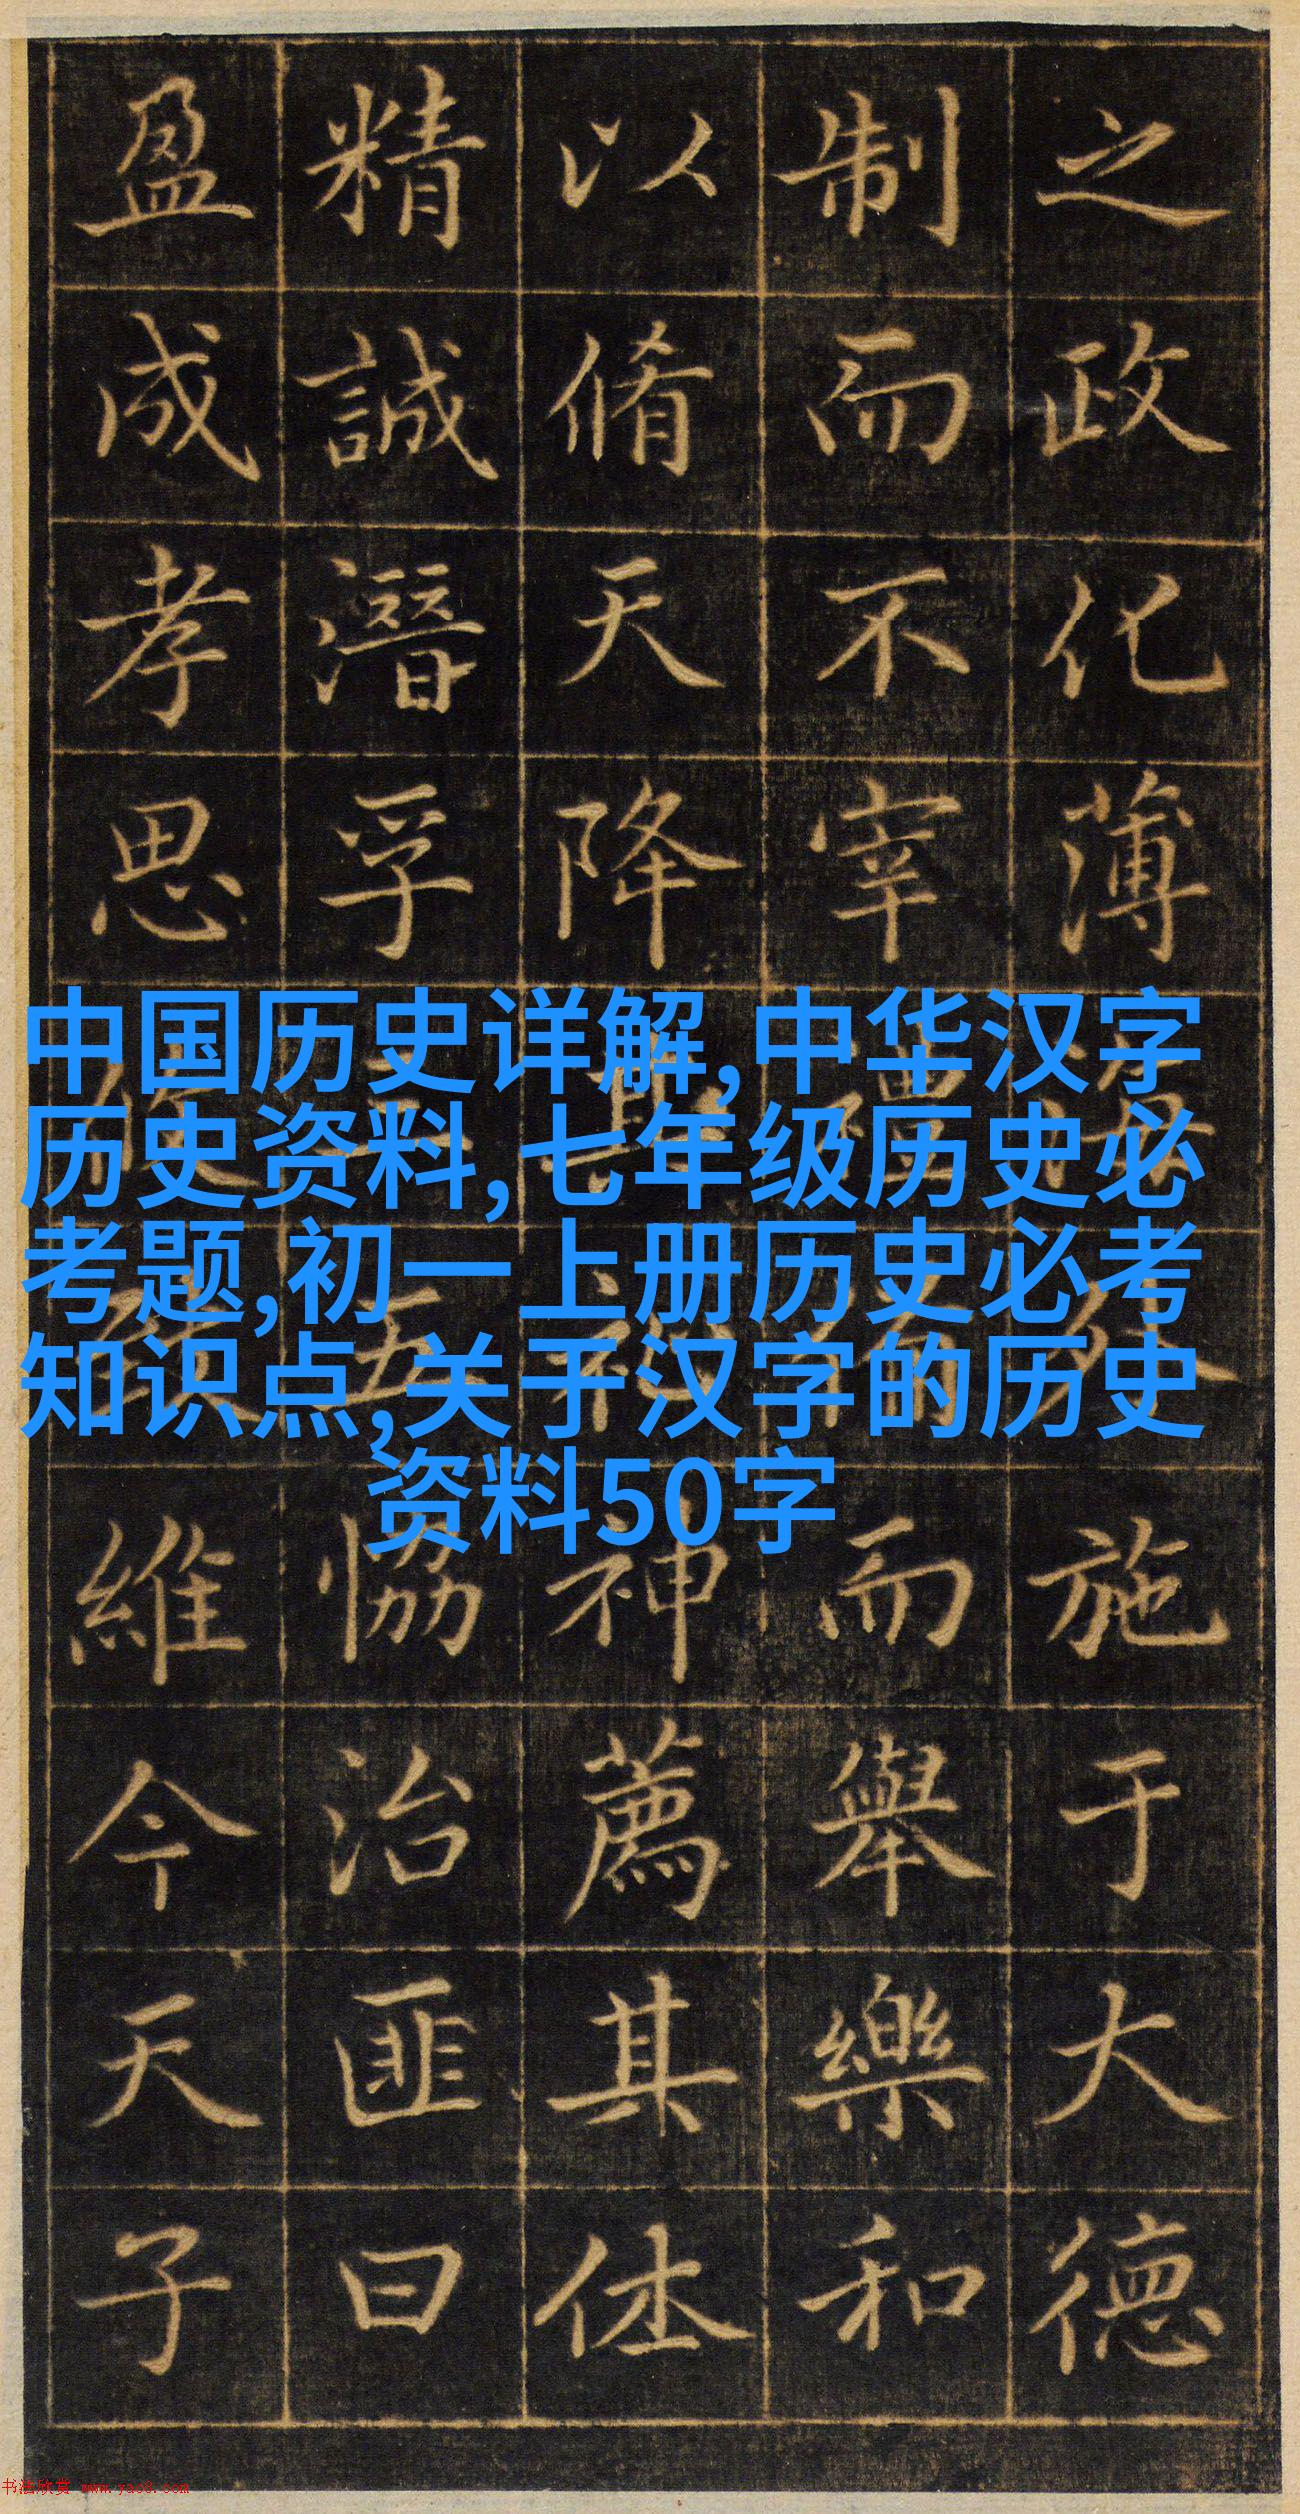 之政化薄
施于大德
制而不宰
而舉樂和
以脩天降
神薦其体
精誠潛孚
恊治匪曰
盈成孝思
維今天子
中国历史详解,中华汉字
历史资料,七年级历史必
考题,初一上册历史必考
知识点,关于汉字的历史
资料50字
书法欣赏 www.yac8.com